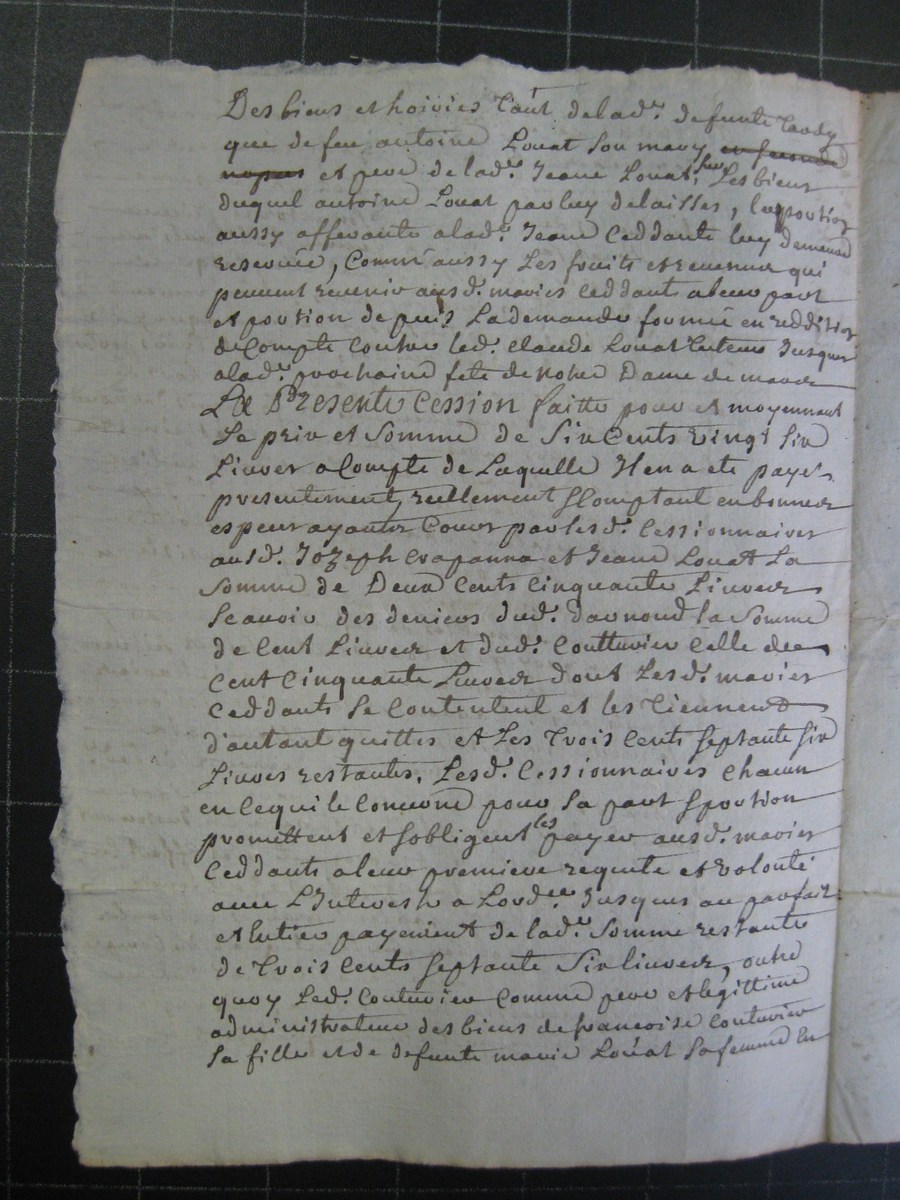 Des biens et hoiries tant delad.e defunte tardy
que de feu antoine Louat son mary en seconde
nopces et pere delad.e Jeane Louat, sur Les biens
duquel antoine Louat par luy delaisses, la portion
aussy afferante alad.e Jeane Ceddante luy demeure
reservée, Comme aussy Les fruits et revenus qui
peuvent revenir ausd. maries Ceddants aleur part
et portion depuis Lademande formée en reddition
de Compte Contre led. Claude Louat tuteur Jusques
alad.e prochaine fete de notre Dame de mars
La Presente Cession faitte pour et moyennant
Le prix et Somme de Six Cents vingt Six
Livres a Compte de Laquelle Il en a ete payé
presentement, reellement & Comptant en bonnes
especes ayants Cours par lesd. Cessionnaires
ausd. Jozeph Crapanna et Jeane Louat La
Somme de Deux Cents Cinquante Livres
Scavoir des deniers dud. Davnond la Somme
de Cent Livres et dud. Coutturier Celle de
Cent Cinquante Livres dont Lesd. maries
Ceddants Se Contentent et les tiennent
d'autant quittes et Les trois Cents Septante Six
Livres restantes, Lesd. Cessionnaires Chacun
en Cequi le Concerne pour Sa part & portion
promettent et Sobligent les payer ausd. maries
Ceddants aleur premiere requete et volonté
avec L'Interest a Lord.re Jusques au parfait
et Entier payement de lad.e Somme restante
de trois Cents Septante Six livres, outre
quoy Led. Couturier Comme pere et legittime
administrateur des biens de francoise Couturier
Sa fille et de defunte marie Loüat Sa femme En